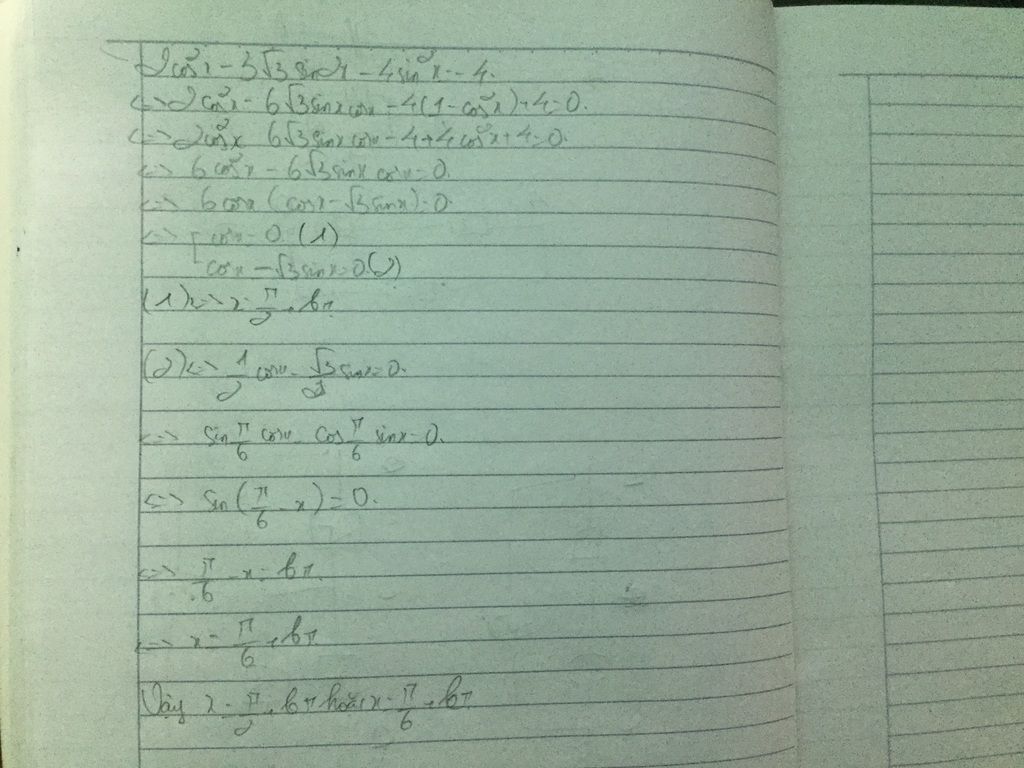 2cos²x - 3√3 sin2x - 4sin²x = -4.
<=> 2cos²x - 6√3 sinx cosx - 4(1 - cos²x) + 4 = 0.
<=> 2cos²x 6√3 sinx cosx - 4 + 4cos²x + 4 = 0.
<=> 6cos²x - 6√3 sinx cosx = 0.
<=> 6cosx (cosx - √3 sinx) = 0
<=> [ cosx = 0 (1)
cosx - √3 sinx = 0 (2)
(1) <=> x = π/2 + kπ
(2) <=> 1/2 cosx - √3/2 sinx = 0.
<=> sin π/6 cosx - cos π/6 sinx = 0.
<=> sin(π/6 - x) = 0.
<=> π/6 - x = kπ.
<=> x = π/6 + kπ
Vậy x = π/2 + kπ hoặc x = π/6 + kπ